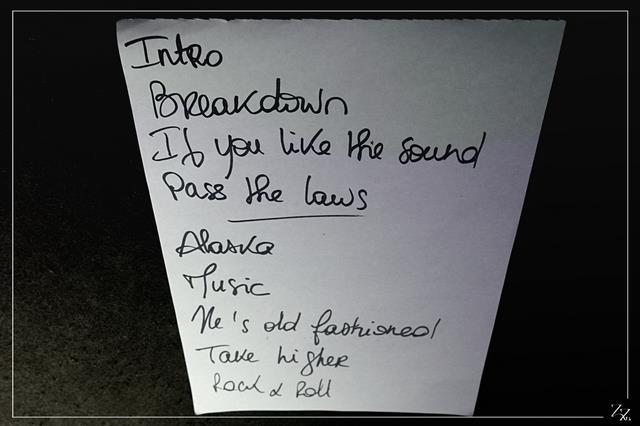 Intro
Breakdown
If you like the sound
Pass the laws
Alaska
Music
He's old fashioned
Take higher
Rock & Roll